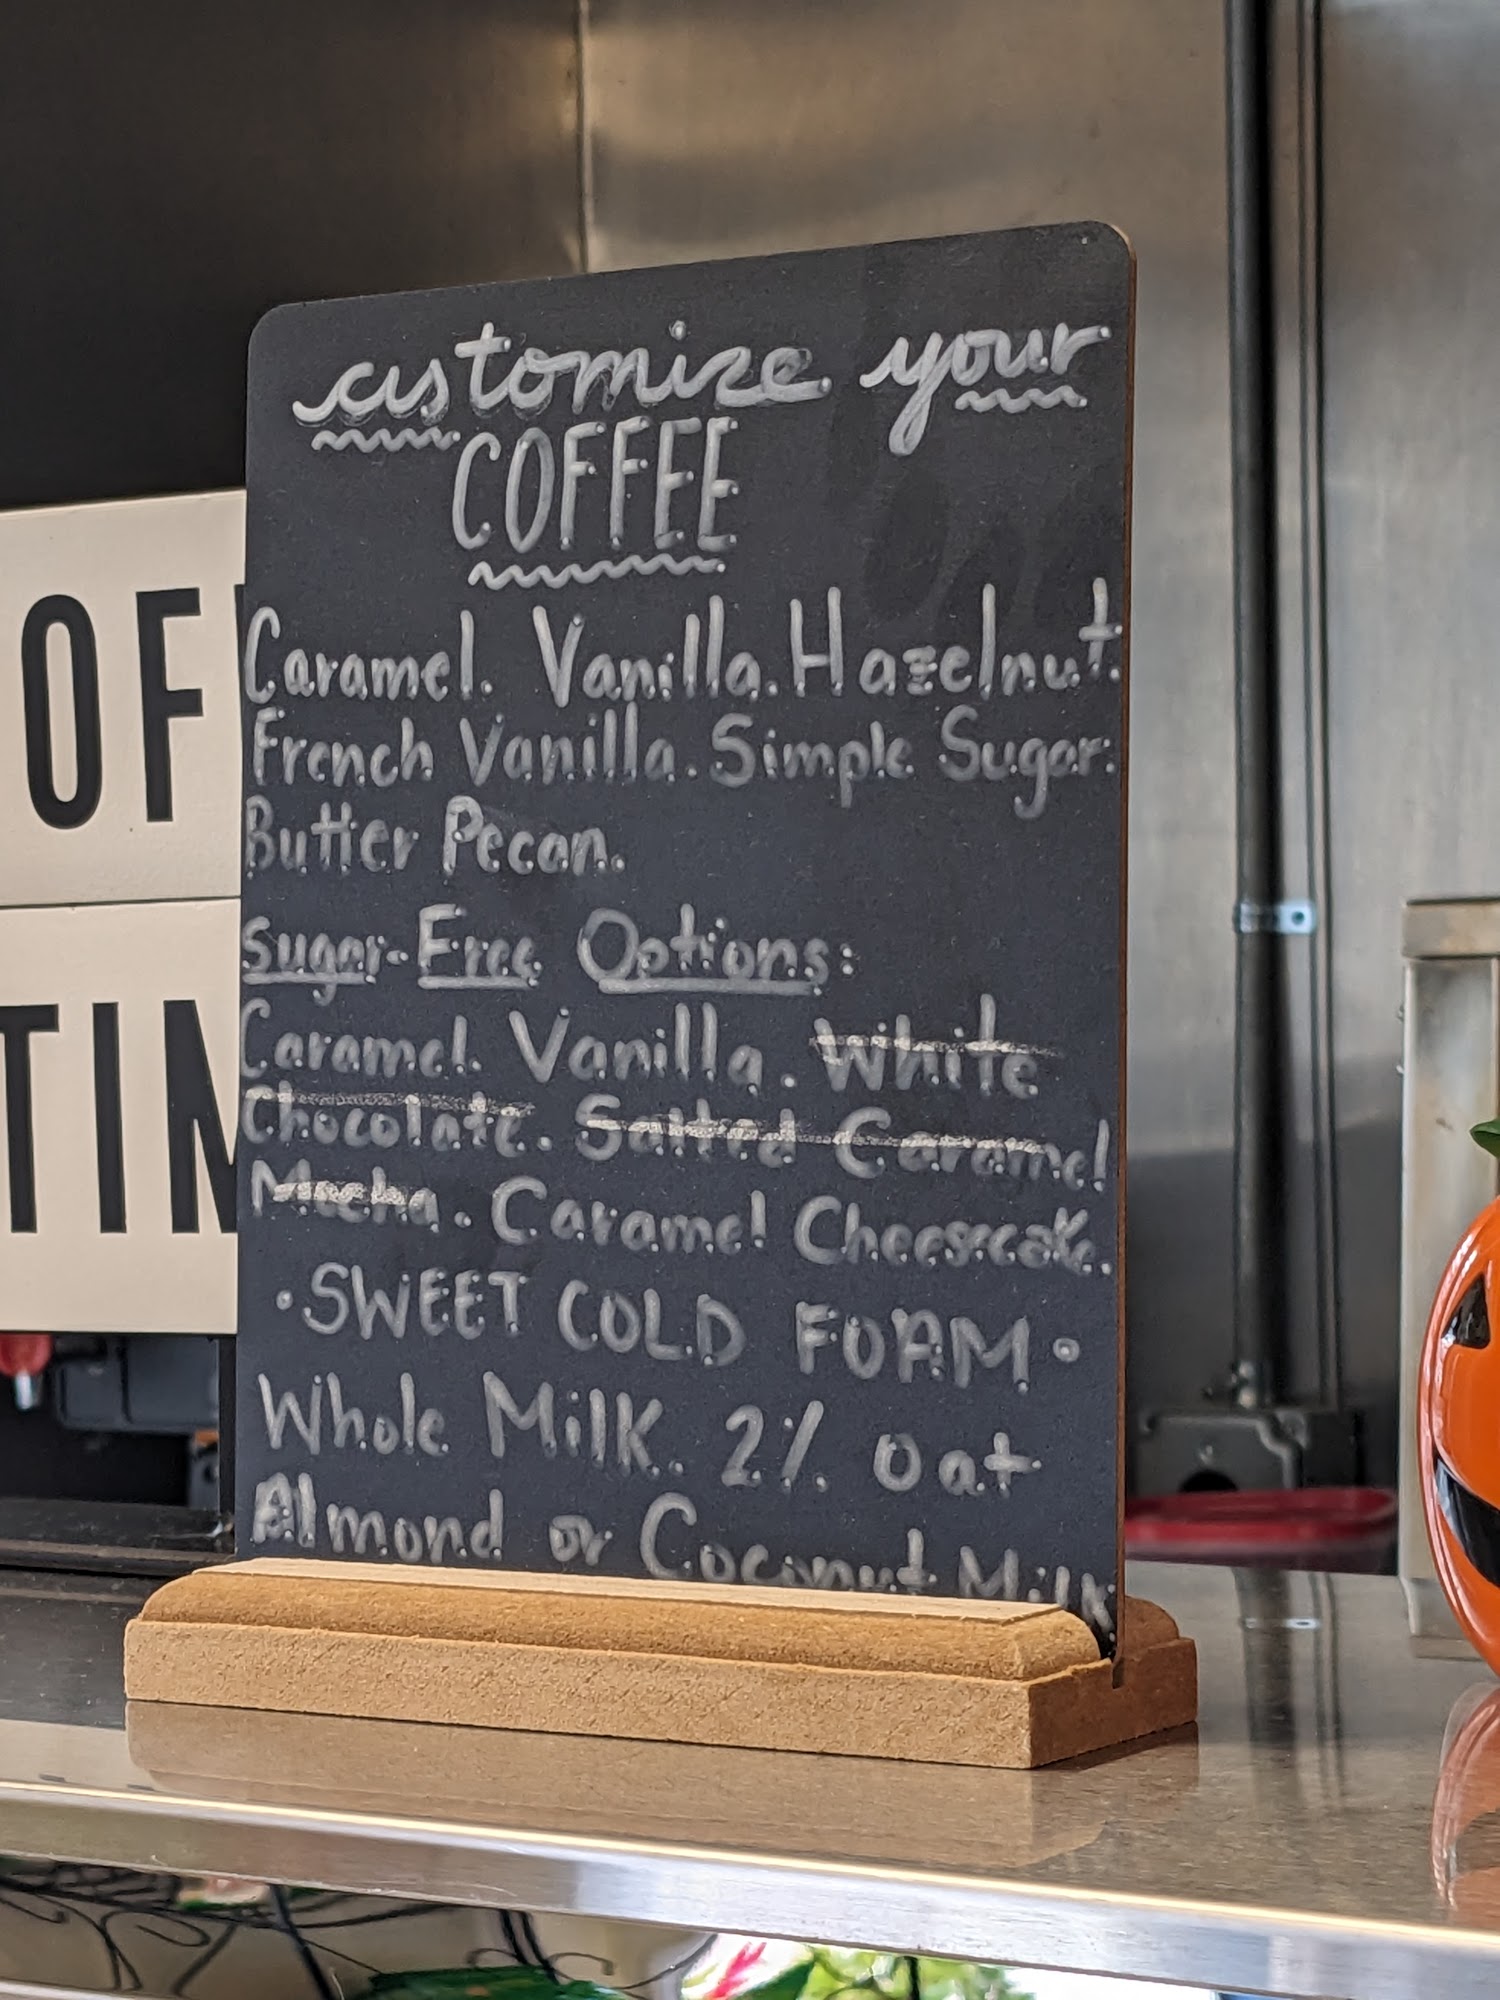 customize your
COFFEE
Caramel. Vanilla. Hazelnut.
French Vanilla. Simple Sugar.
Butter Pecan.
Sugar-Free Options:
Caramel. Vanilla. White
Chocolate. Salted Caramel
Mocha. Caramel Cheesecake.
•SWEET COLD FOAM•
Whole Milk. 2% Oat
Almond or Coconut Milk
OF
TIN